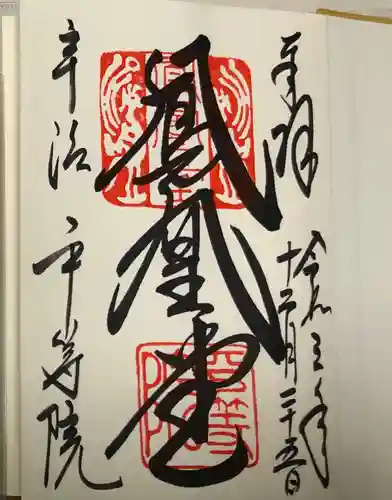 奉拝
令和三年
十二月二十五日
鳳凰堂
宇治 平等院
平等院